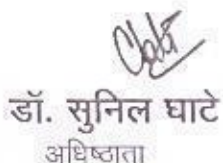 डॉ. सुनिल घाटे
अधिष्ठाता